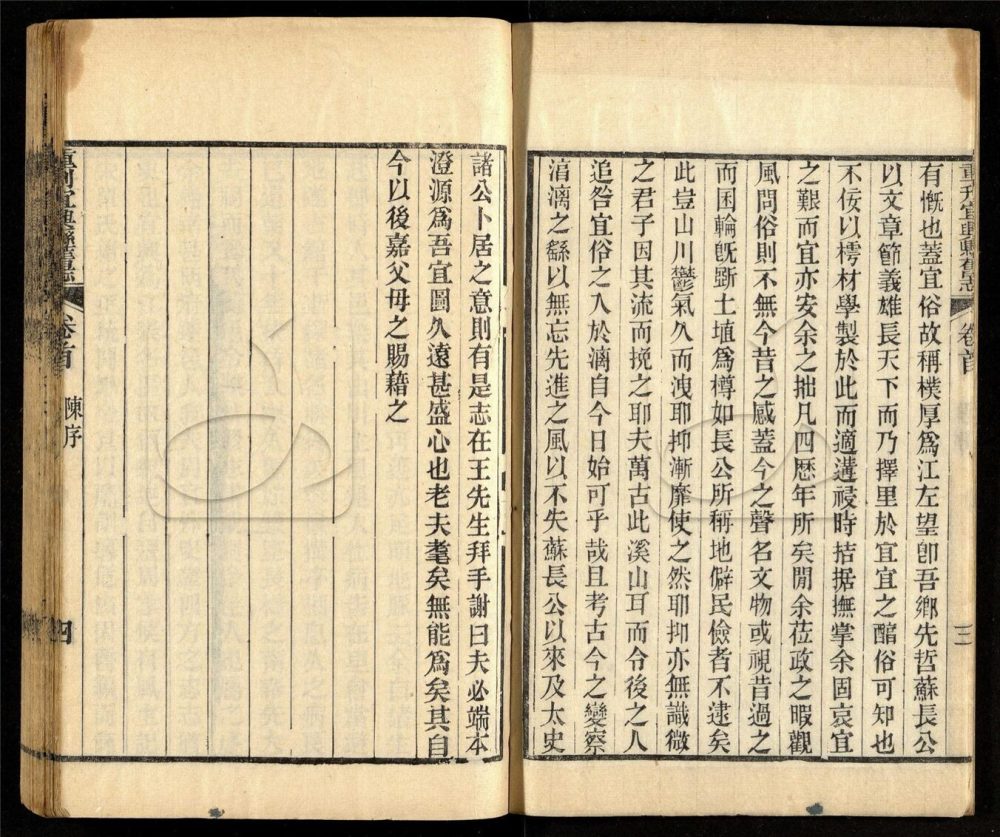 重刊宜興縣舊志
卷首
三
有慨也蓋宜俗故稱樸厚爲江左望卽吾鄉先哲蘇長公
以文章節義雄長天下而乃擇里於宜宜之醕俗可知也
不佞以樗材學製於此而適遘祲時拮据撫掌余固哀宜
之艱而宜亦安余之拙凡四歷年所矣閒余莅政之暇觀
風問俗則不無今昔之感蓋今之聲名文物或視昔過之
而困輪旣斲土埴爲樽如長公所稱地僻民儉者不逮矣
此豈山川鬱氣久而洩耶抑漸靡使之然耶抑亦無識微
之君子因其流而挽之耶夫萬古此溪山耳而令後之人
追咎宜俗之入於漓自今日始可乎哉且考古今之變察
湻漓之繇以無忘先進之風以不失蘇長公以來及太史
諸公卜居之意則有是志在王先生拜手謝曰夫必端本
澄源爲吾宜圖久遠甚盛心也老夫耄矣無能爲矣其自
今以後嘉父母之賜藉之
重刊宜興縣舊志
卷首
陳序
四